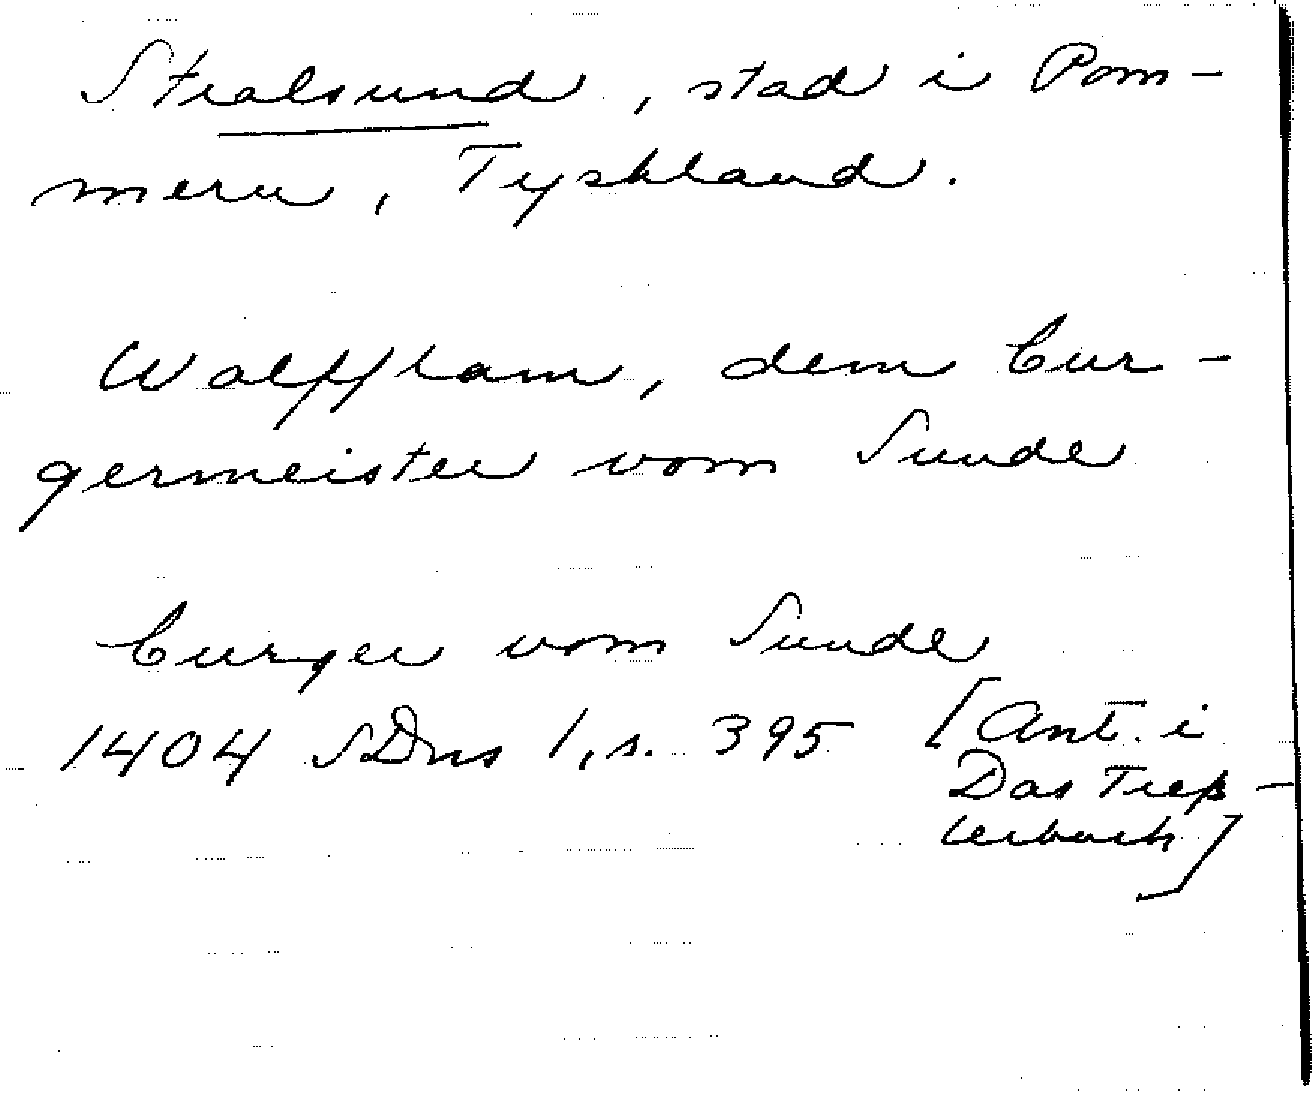 Stralsund, stad i Pom-
mern, Tyskland.
Wulffham, dem bur-
germeister vom Sunde
burger vom Sunde
1404 SDns 1, s. 395 [Ant. i
Das Treß-
lerbuch]